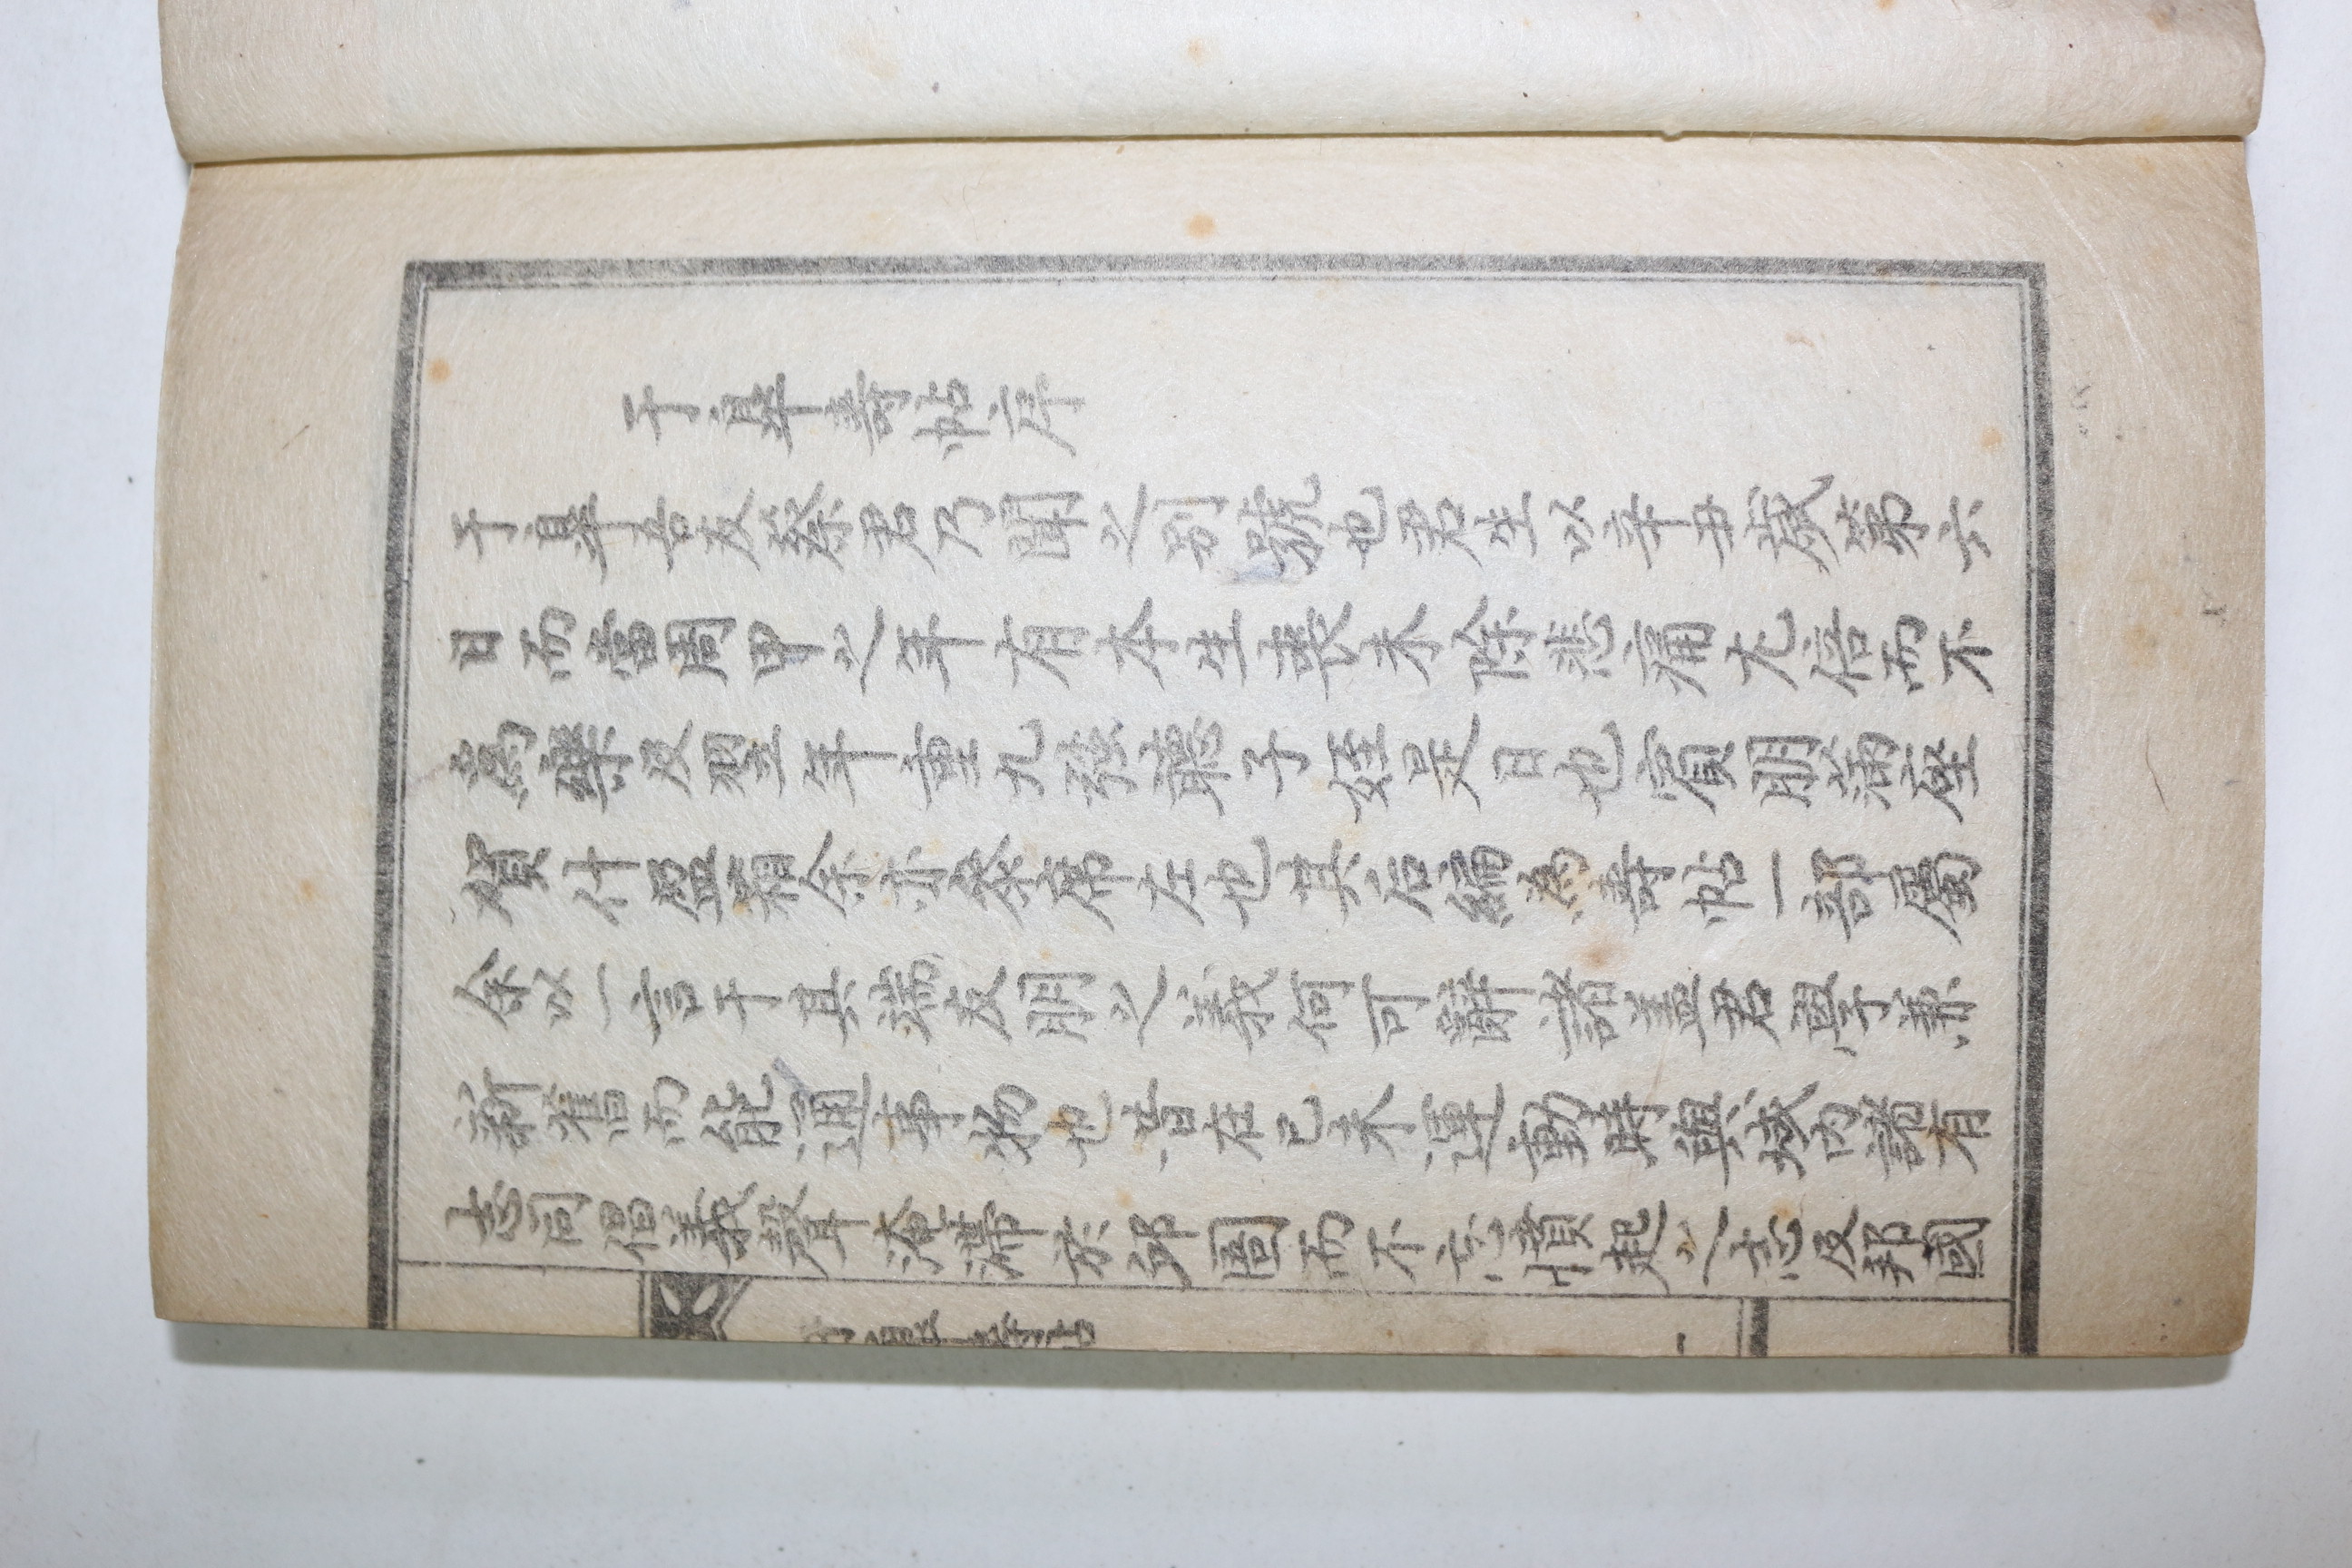 于皐壽帖序
于皐吾友蔡君乃聞之別號也君生以辛丑歲第六
日而當周甲之年有本生喪未除悲痛尤倍而不
爲樂及翌年重九强聽子姪是日也賓朋滿座
賀什盈箱余亦叅席左也其后編為壽帖一部屬
余以一言于其端友朋之義何可辭諸盖君學兼
新舊而能通事物也昔在已未運動時與域內諸有
志同倡義聲淹滯於郢圄而不忘憤起之志及邦國
于皐壽帖
一